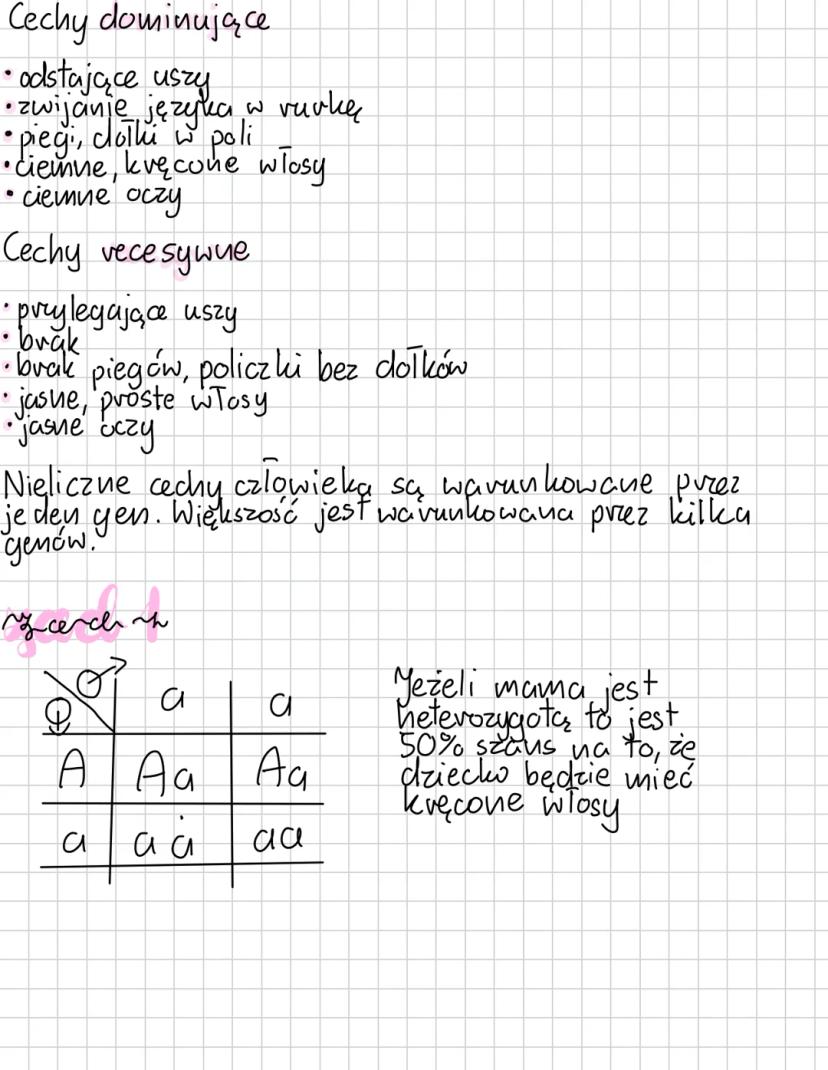 Cechy dominujące
• odstające uszy
• zwijanie języka w rurkę
• piegi, dołki w poli
• ciemne, kręcone włosy
• ciemne oczy
Cechy recesywne
• przylegające uszy
• brak
• brak piegów, policzki bez dołków
• jasne, proste włosy
• jasne oczy
Nieliczne cechy człowieka są warunkowane przez
jeden gen. Większość jest warunkowana przez kilka
genów.
zad 1
♂ a a
♀
A Aa Aa
a aa aa
Jeżeli mama jest
heterozygotą to jest
50% szans na to, że
dziecko będzie mieć
kręcone włosy